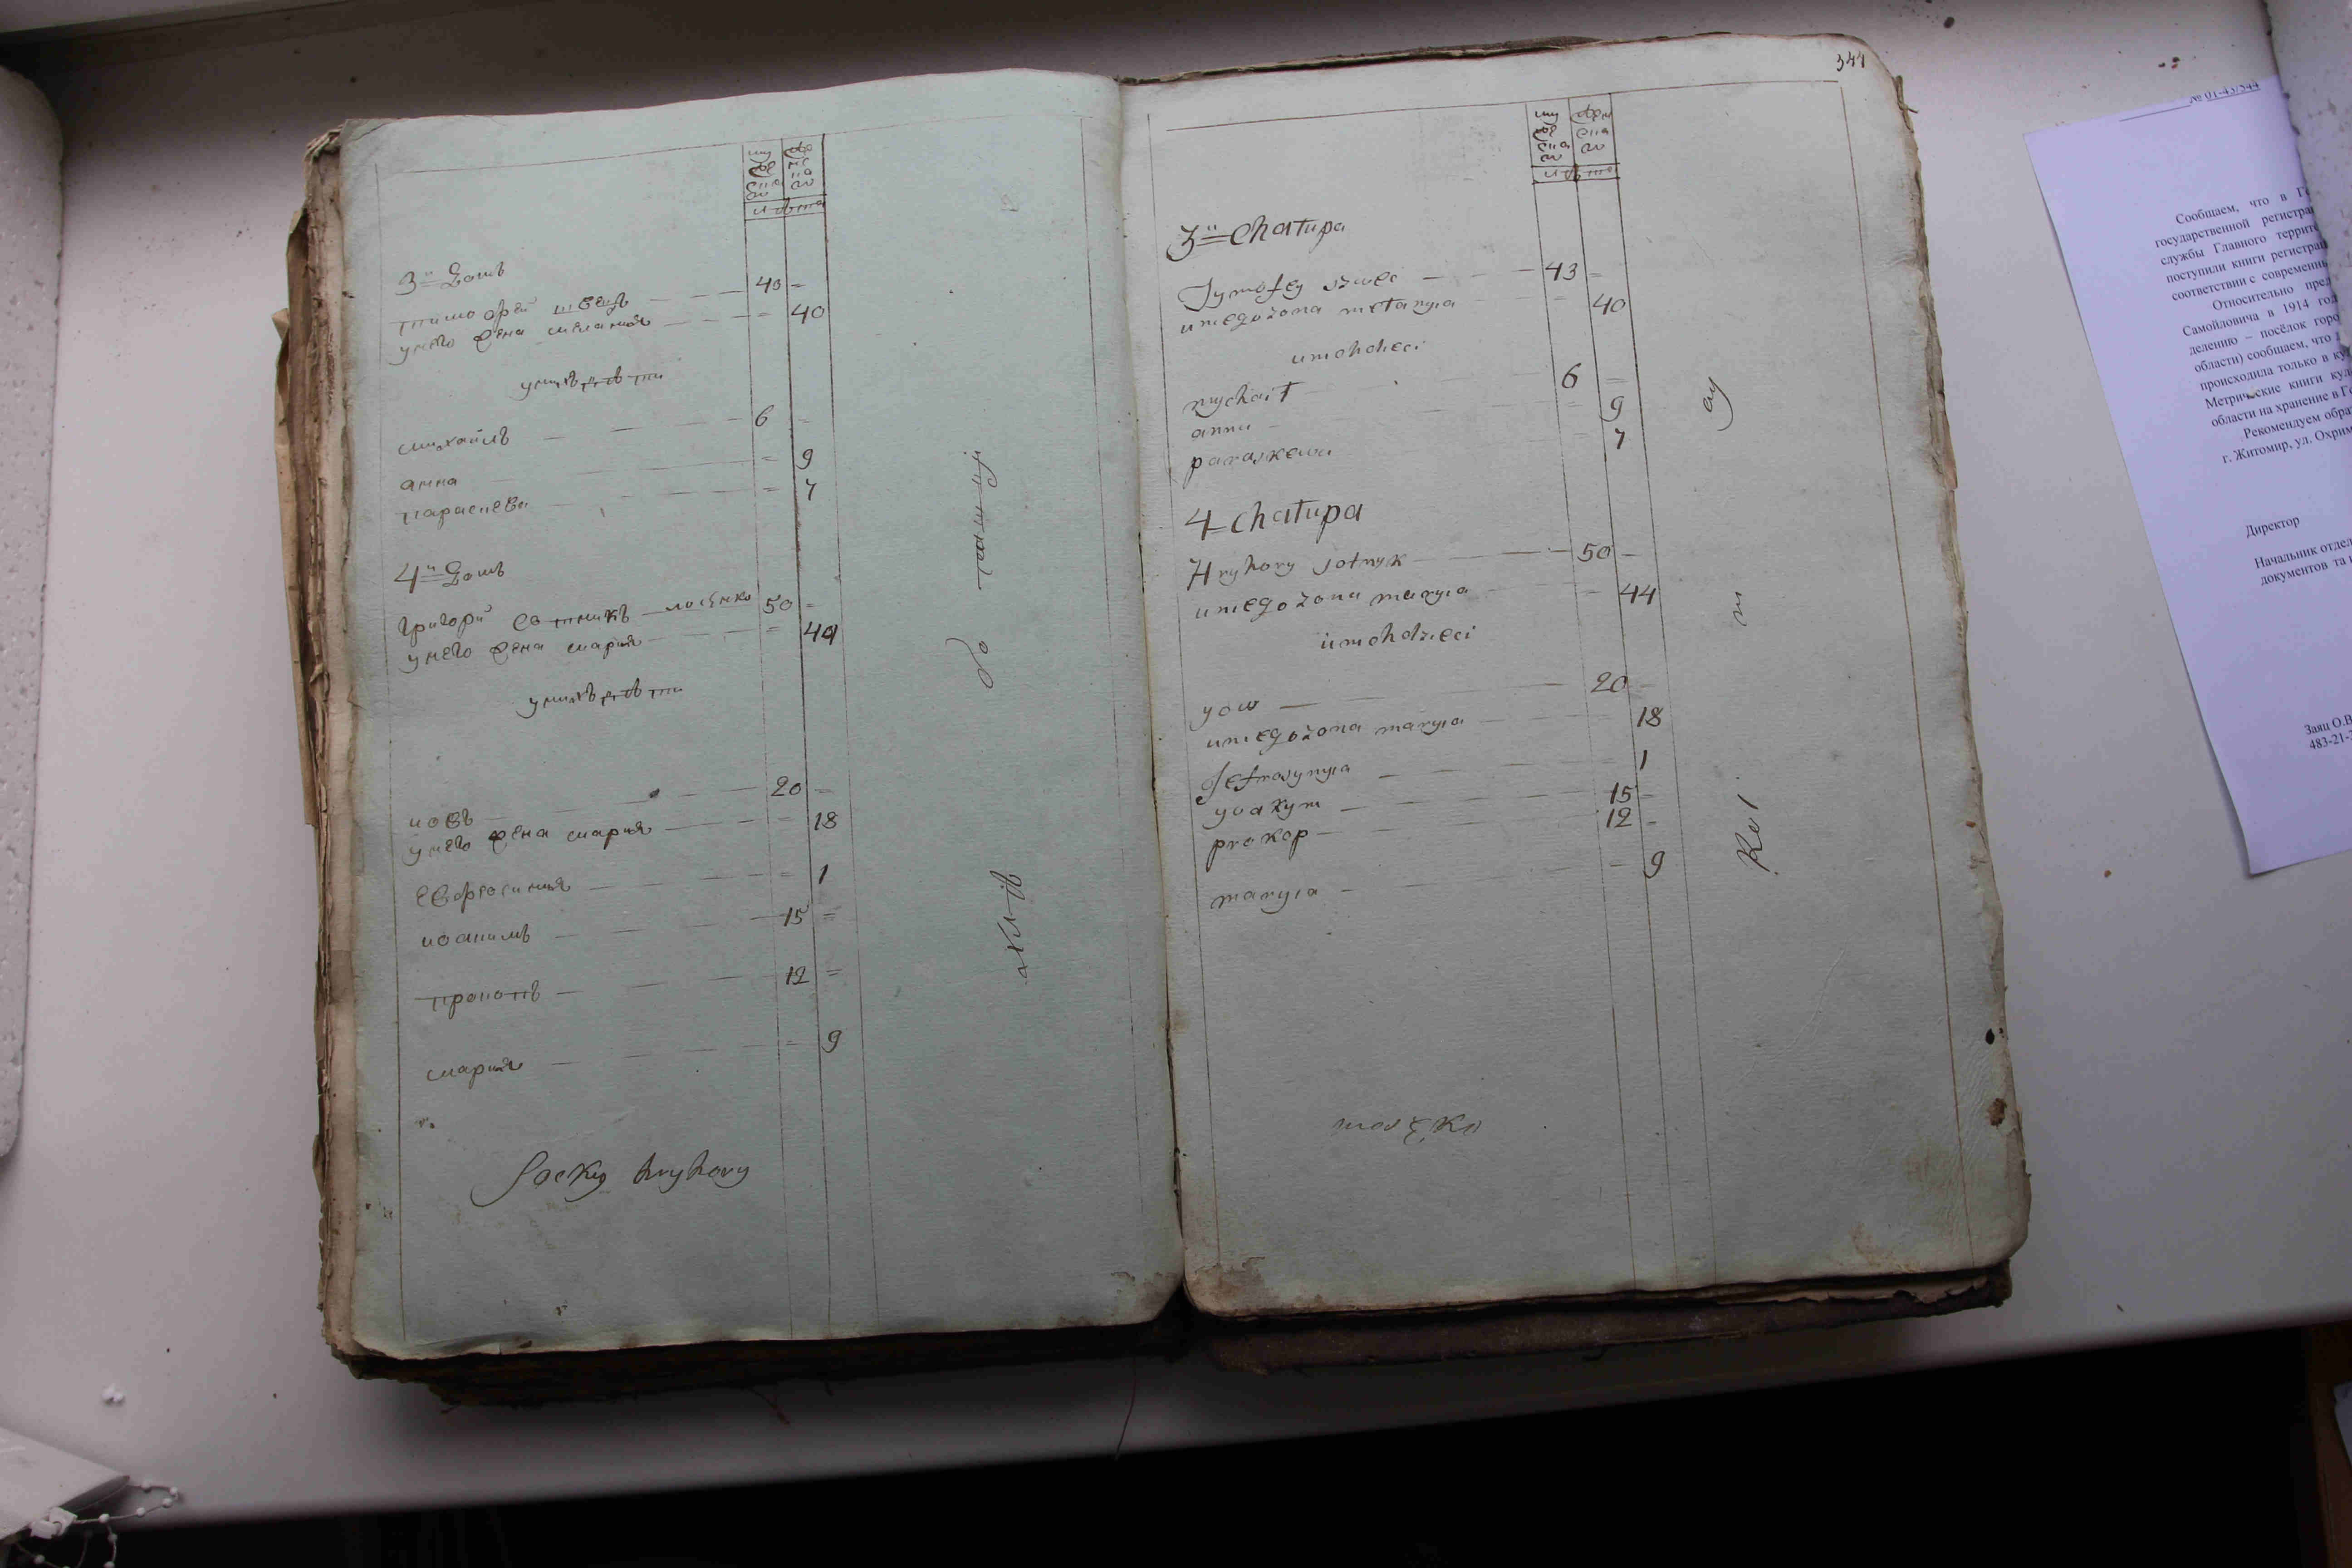 му
же
ска
го
же
нс
ка
го
лѣта
3й Домъ
тимофей швецъ — 43 =
у него жена мелания — = 40
у нихъ дѣти
михайлъ — 6 =
анна — = 9
параскева — = 7
4й Домъ
григорй сотникъ — мосѣнко 50 =
у него жена мария — = 44
у нихъ дѣти
иовъ — 20 =
у него жена мария — = 18
евфросиния — = 1
иоакимъ — 15 =
прокопъ — 12 =
мария — = 9
Socky hryhory
344
лѣта
3й Chałupa
Tymofey szwec — 43 =
u niego żona mełanyia = 40
u nich dzieci
mychaił 6 =
anna = 9
paraskewa 7
4 Chałupa
Hryhory sotnyk — 50 =
u niego żona maryia — = 44
u nich dzieci
yow — 20 =
u niego żona maryia — 18
Jefrosynyia — 1
yoakym — 15 =
prokop — 12 =
maryia — = 9
№ 01-43/344
Сообщаем, что в Г
государственной регистра
службы Главного террито
поступили книги регистрац
соответствии с современны
Относительно пред
Самойловича в 1914 год
делению – посёлок горо
области) сообщаем, что
происходила только в ку
Метрические книги кул
области на хранение в Г
Рекомендуем обра
г. Житомир, ул. Охрим
Директор
Начальник отдел
документов та
Заяц О.В
483-21-